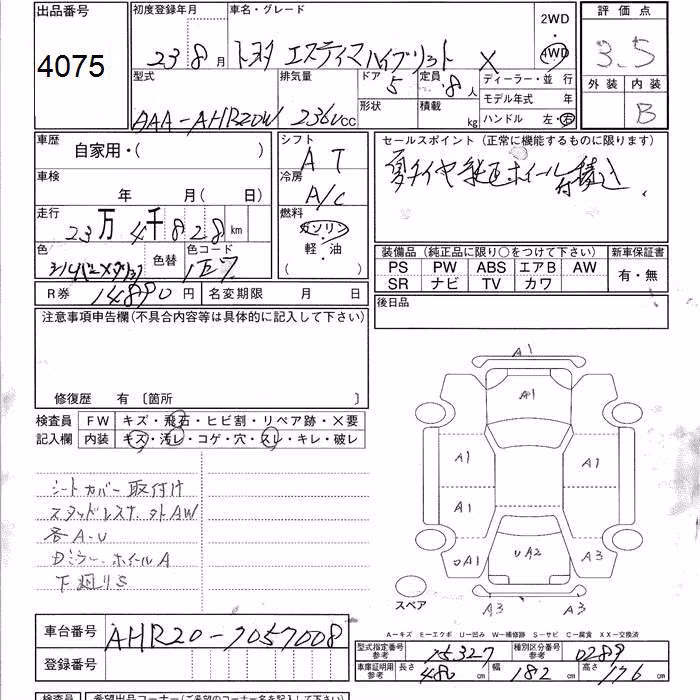 出品番号 4075
初度登録年月 23 8月
車名・グレード トヨタ エスティマハイブリット X
2WD 4WD
評価点 3.5
外装 内装 B
型式 AAA-AHR20W
排気量 2360cc
ドア 5
形状
定員 8人
積載 kg
ディーラー・並行
モデル年式 年
ハンドル 左・右
車歴 自家用・( )
車検 年 月(日)
走行 23万4千828km
色 シルバーメタリック
色替
色コード 1E7
R券 14890円
名変期限 月 日
シフト AT
冷房 A/C
燃料 ガソリン・軽・油 ( )
セールスポイント(正常に機能するものに限ります)
夏タイヤ純正ホイール付積込
装備品(純正品に限り○をつけて下さい)
新車保証書
PS PW ABS エアB AW
SR ナビ TV カワ
有・無
後日品
注意事項申告欄(不具合内容等は具体的に記入して下さい)
修復歴 有 〔箇所 〕
検査員記入欄
FW キズ・飛石・ヒビ割・リペア跡・×要
内装 キズ・汚レ・コゲ・穴・スレ・キレ・破レ
シートカバー取付け
スタッドレスサ.外AW
各A-U
ドミラー.ホイールA
下廻りS
A1
A1
A1 A1
A1
UA1 UA2 A3
A3 A3
スペア
A-キズ E-エクボ U-凹み W-補修跡 S-サビ C-腐食 XX-交換済
車台番号 AHR20-7057008
登録番号
型式指定番号参考 15327
種別区分番号参考 0288
車庫証明用参考 長さ 480cm 幅 182cm 高さ 176cm
検査員
希望出品コーナー(ご希望のコーナー名を記入して下さい)